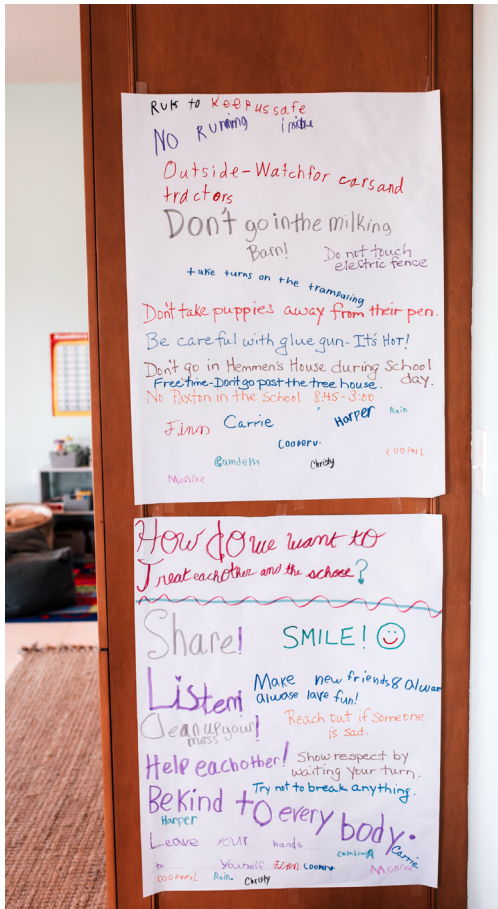 Ruls to Keep us safe
No Running inside
Outside-Watch for cars and
tractors
Don't go in the milking
Barn!
Do not touch
electric fence
take turns on the trampaling
Don't take puppies away from their pen.
Be careful with glue gun-It's HoT!
Don't go in Hemmen's House during School
day.
Free time-Dont go past the tree house.
No Paxton in the School 8:45-3:00
Finn Carrie Harper Rain
Cooperv. Cooper L
Camdem Christy
Monroe
How do we want to
Treat each other and the school?
Share! SMILE!
Listen!
Make new friends &
alwase have fun!
Clean up your
mess!
Reach out if someone
is sad.
Help each other!
Show respect by
waiting your turn.
Try not to break anything.
Be kind to every body.
Harper
Leave your hands
to Yourself Finn Cooperv. Carrie
Cooper L Rain. Christy Monroe